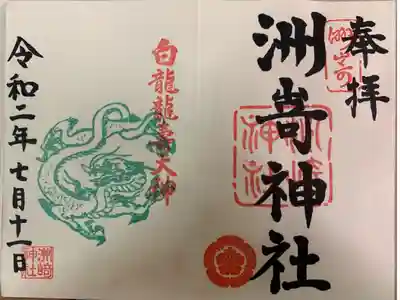 奉拝
洲嵜神社
洲崎神社
白龍龍寿大神
令和二年七月十一日
洲崎神社